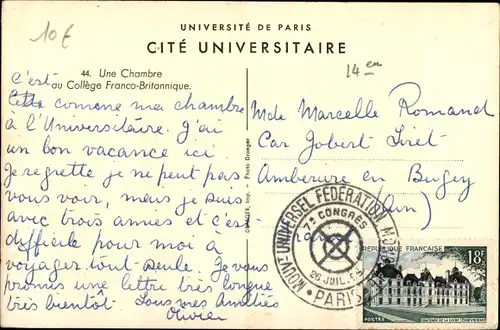 10€
UNIVERSITÉ DE PARIS
CITÉ UNIVERSITAIRE
14 en
44. Une Chambre
au Collège Franco-Britannique.
C'est
Cette comme ma chambre
à l'Universitaire. J'ai
un bon vacance ici
Je regrette je ne peut pas
vous voir, mais je suis
avec trois amies et c'est
difficile pour moi à
voyager tout seule. Je vous
promis une lettre très longue
très bientôt.
Olivier
DRAEGER, Imp. - Photo Draeger
Mde Marcelle Romand
Car Jobert Siret
Amberieu en Bugey
(Ain)
MOUVT UNIVERSEL FEDERATION
7e CONGRÈS
26 JUIL.
PARIS
REPUBLIQUE FRANÇAISE
18F
POSTES